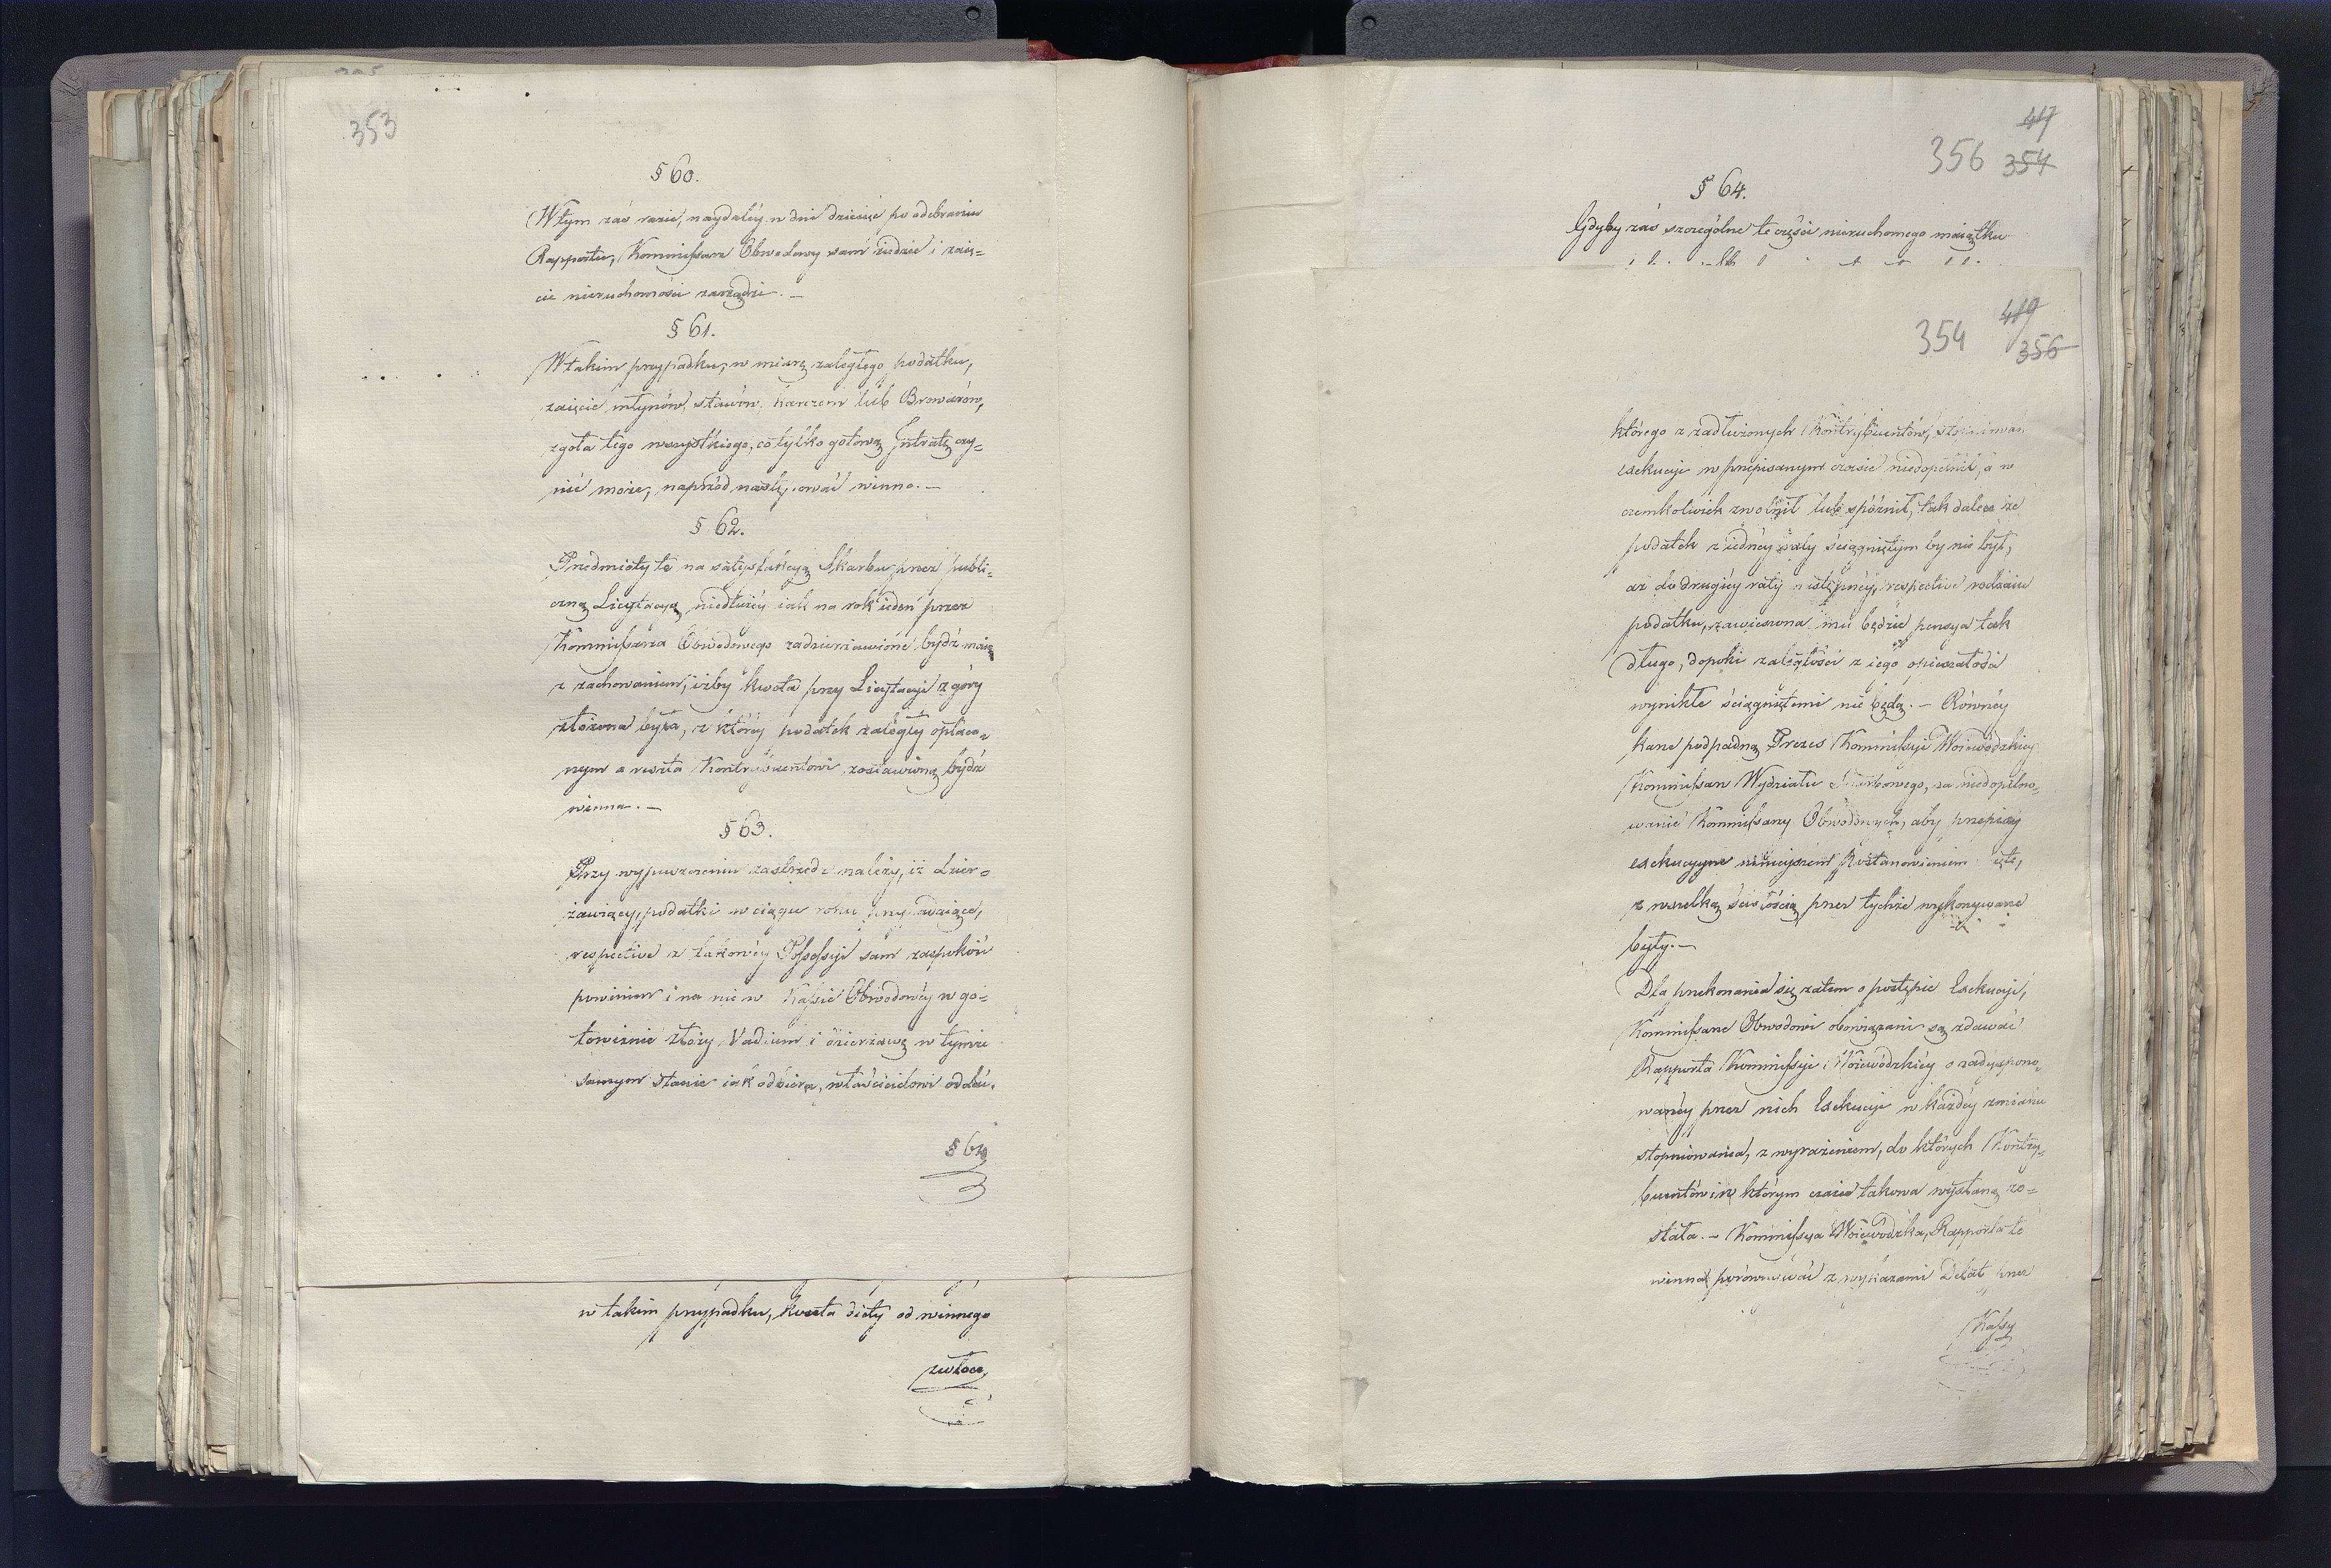 353
§ 60.
W tym záś razie, naydaléy w dni dziesięć po odebraniu
Rapportu, Kommissarz Obwodowy sam ziedzie i zaię=
cie nieruchomości zarządzi. –
§ 61.
W takim przypadku, w miarę zaległego podatku,
zaięcie młynów, stawów, karczem lub Browarów,
zgoła tego wszystkiego, co tylko gotową Intratę czy=
nić może, naprzód następować winno. –
§ 62.
Przedmioty te na satysfakcyą Skarbu przez publi=
czną Licytacyą niedłużéy iak na rok ieden przez
Kommissarza Obwodowego zadzierżawione bydź maią
z zachowaniem, iżby kwota przy Licytacyi z góry
złożona była, z któréy podatek zaległy opłaco=
nym a reszta Kontrybuentowi zostawioną bydź
winna. –
§ 63.
Przy wypuszczeniu zastrzedz należy, iż dzier=
żawiący, podatki w ciągu roku przypadaiące,
respective z takowéy Possessyi sam zaspokoić
powinien i na nie w Kassie Obwodowéy w go=
towiźnie złoży Vadium i dzierżawę w tymże
samym stanie iak odbiera, właścicielowi odda.
§ 64
w takim przypadku, kwota diety od winnego
zwłoce
417
356 354
§ 64.
Gdyby záś szczególne te części nieruchomego maiątku
419
354 356
którego z zadłużonych Kontrybuentów,
exekucyi w przepisanym czasie niedopełnił, a w
czemkolwiek zwolnił lub spóźnił, tak dalece że
podatek z iednéy raty ściągniętym by nie był,
aż do drugiéy raty następnéy, respective rodzaiu
podatku, zawieszona mu będzie pensya tak
długo, dopóki zaległości z iego opieszałości
wynikłe ściągniętemi nie będą. – Równéy
karze podpadną Prezes Kommissyi Woiewódzkiéy
Kommissarz Wydziału Skarbowego, za niedopilno=
wanie Kommissarzy Obwodowych, aby przepisy
exekucyyne ninieyszém Postanowieniem
z wszelką ścisłością przez tychże wykonywane
były. –
Dla przekonania się zatem o postępie Exekucyi,
Kommissarze Obwodowi obowiązani są zdawać
Rapporta Kommissyi Woiewódzkiéy o zadyspono=
wanéy przez nich Exekucyi w każdéy zmianie
stopniowania, z wyrażeniem, do których Kontry=
buentów i w którym czasie takowa wysłaną zo=
stała. – Kommissya Woiewódzka, Rapporta te
winna porównywać z wykazami Debat przez
Kassy